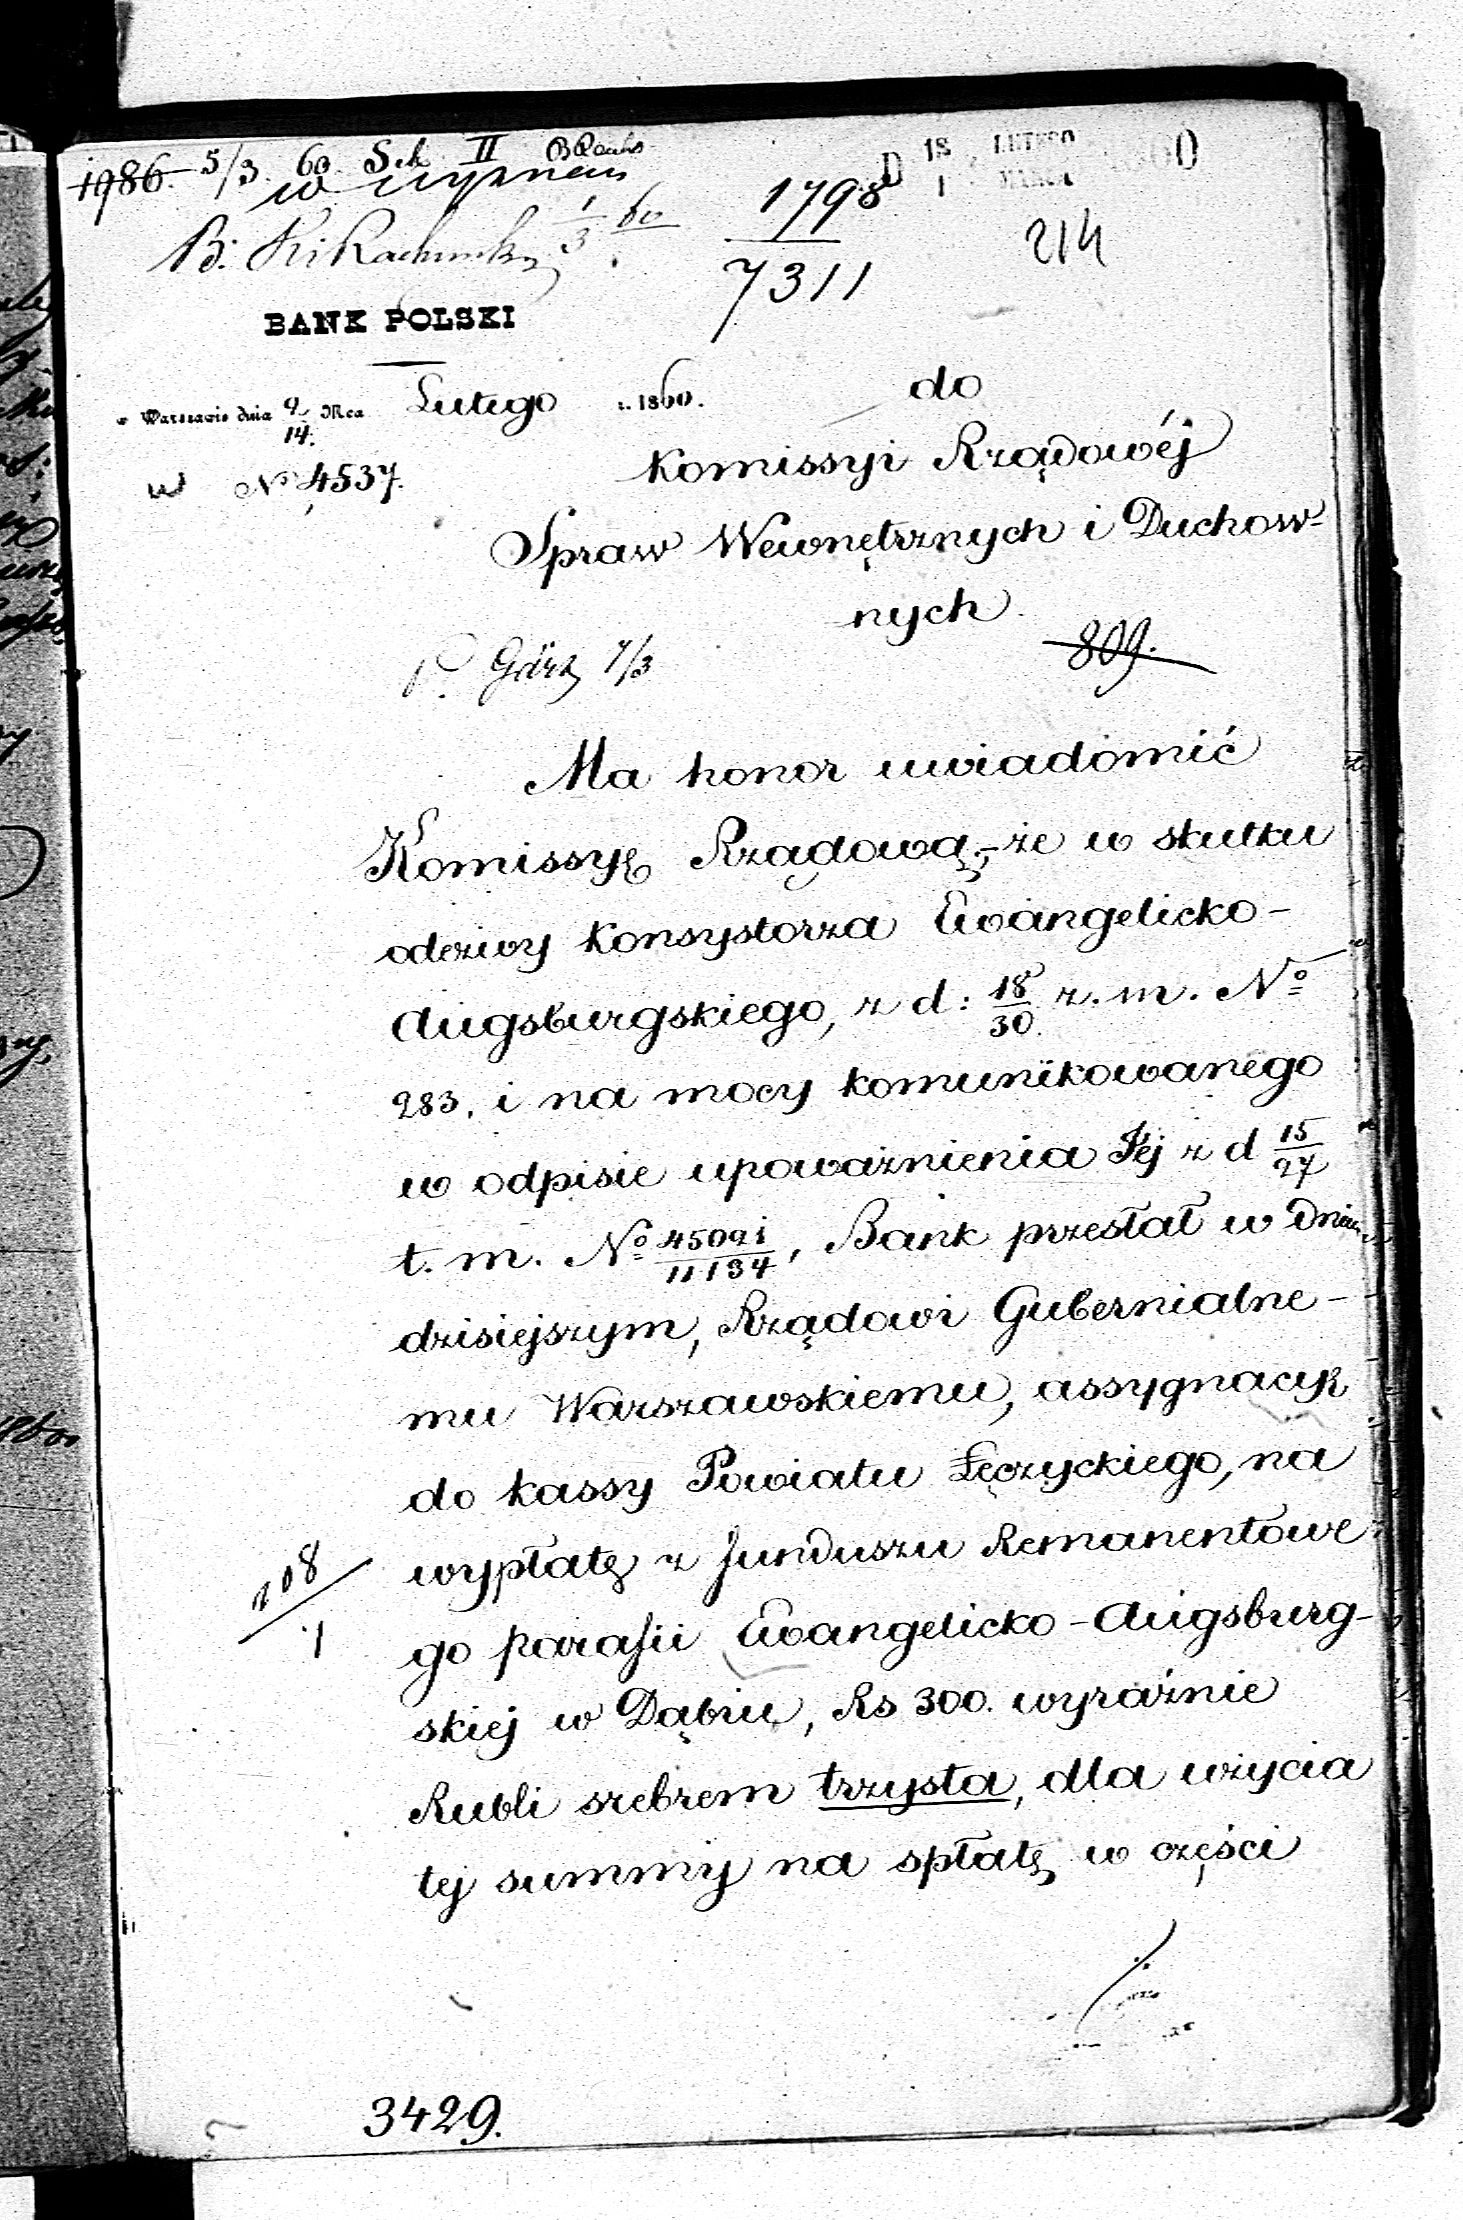 1986. 5/3. 60. Sek. II
D 18 LUTEGO 60
1 MARCA
1798
7311
214
B.
1/3 60
BANK POLSKI
w Warszawie dnia 2/14. Mca Lutego r. 1860.
W No 4537.
do
Komissyi Rządowéj
Spraw Wewnętrznych i Duchow-
nych
809.
P. Görz 7/3
Ma honor uwiadomić
Komissyę Rządową,- że w skutku
odezwy Konsystorza Ewangelicko-
Augsburgskiego, z d: 18/30. z. m. No
283. i na mocy komunikowanego
w odpisie upoważnienia Jéj z d 15/27
t. m. No 45091/11134, Bank przesłał w dniu
dzisiejszym, Rządowi Gubernialne-
mu Warszawskiemu, assygnacyę
do kassy Powiatu Łęczyckiego, na
wypłatę z funduszu Remanentowe
go parafii Ewangelicko-Augsburg-
skiej w Dąbiu, Rs 300. wyraźnie
Rubli srebrem trzysta, dla użycia
tej summy na spłatę w części
208/1
3429.